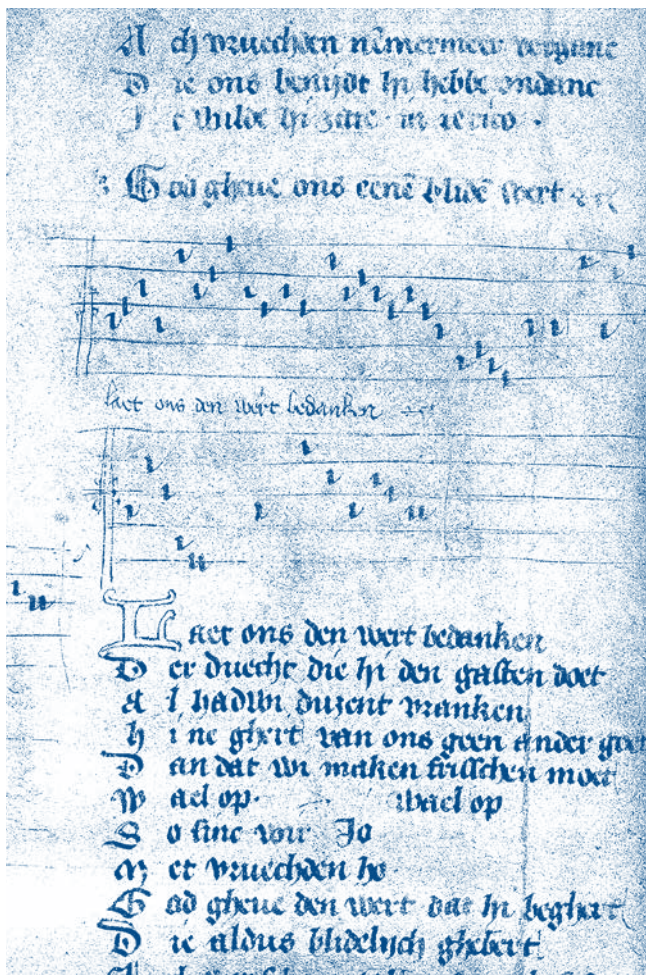 Ach vruechden nēmermeer verginc
Die ons benijdt hi hebbe ondanc
Ic wilde hi zate in ierico.
God gheue ons eenē blidē wert
laet ons den wert bedanken
Laet ons den wert bedanken
Der duecht die hi den gasten doet
Al hadwi duzent vranken
hi ne ghert van ons geen ander
Dan dat wi maken frisschen moet
Wael op. wael op
So sinc wir Jo
Met vruechden ho.
God gheue den wert dat hi beghert
Die aldus blidelijch ghebert